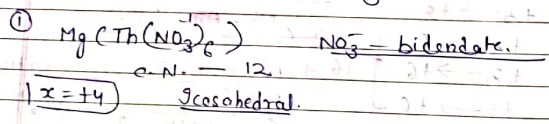 ① Mg(Th(NO₃⁻)₆) NO₃⁻ – bidendate.
C.N. – 12.
x = +4 Icosahedral.